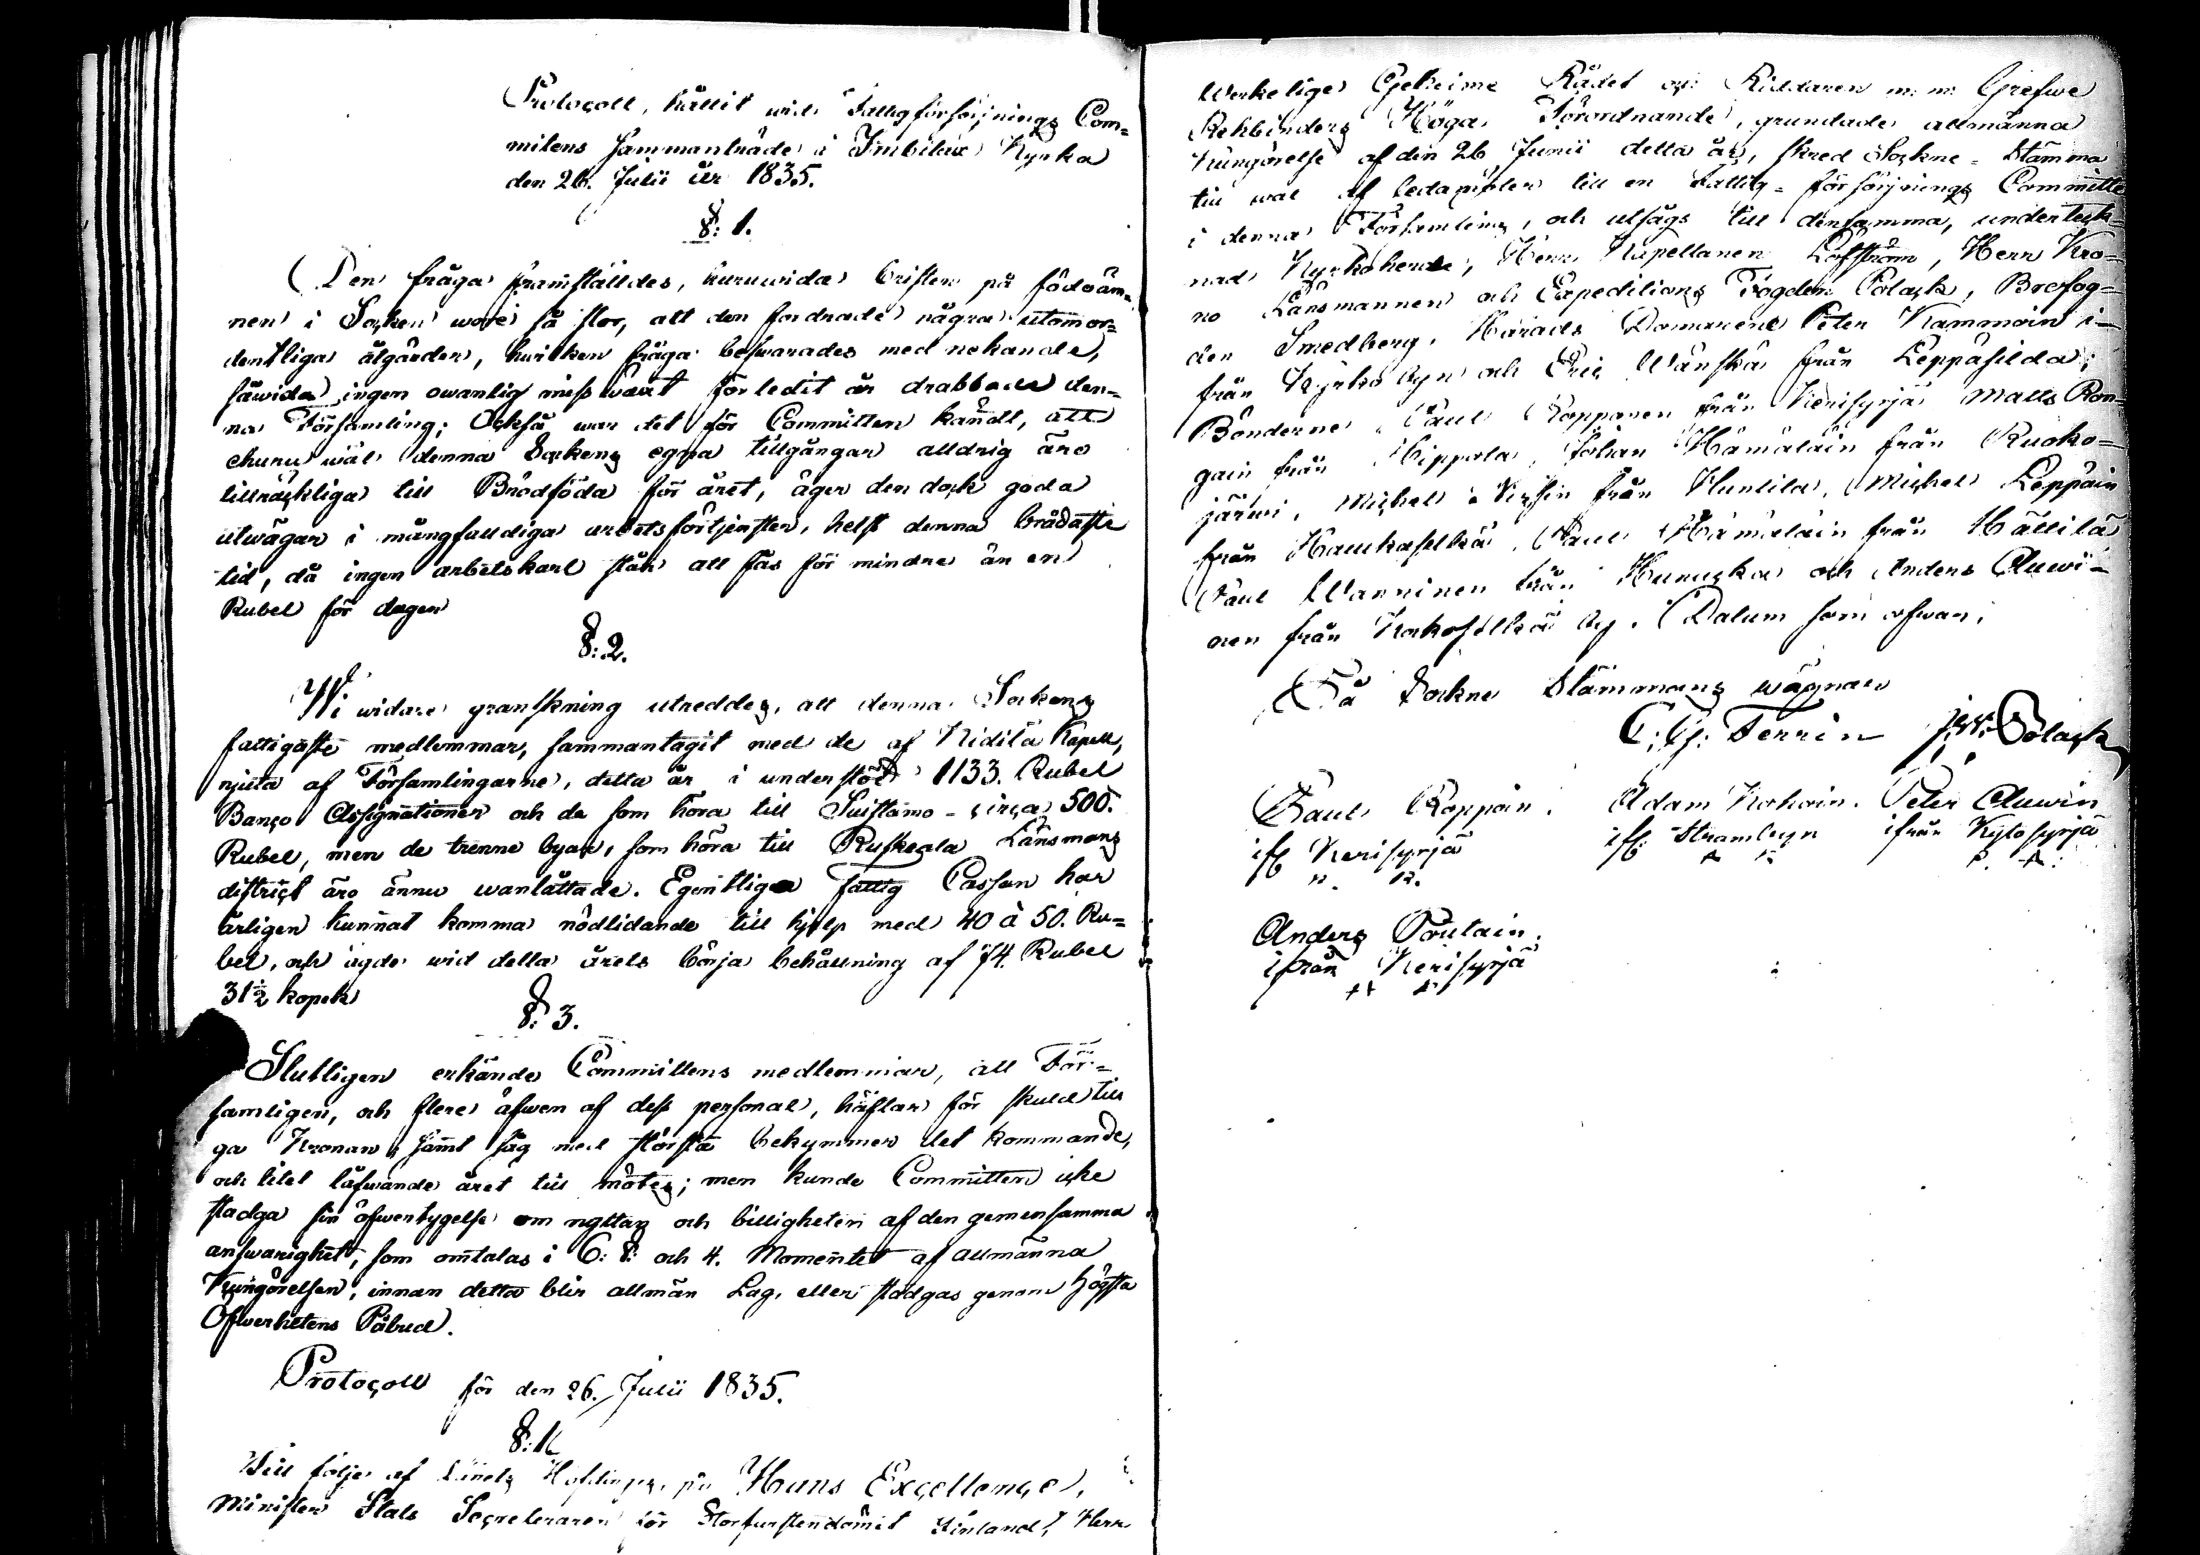 Protocoll, hållit wid Fattigförsörjnings Com=
mitens Sammanträde i Imbilax Kyrka
den 26. Julii år 1835.
§: 1.
Den fråga framställdes, huruwida bristen på födoäm=
nen i Socken wore så stor, att den fordrade några utomor=
dentliga åtgärder, hwilken fråga beswarades med nekande,
såwida ingen owanlig missväxt förledit år drabbade den=
na Församling; Också war det för Committen kändt, att
ehuru wäl denna Sockens egna tillgångar alldrig äro
tillräckliga till Brödföda för året, äger den dock goda
utwägar i mångfalldiga arbetsförtjenster, helst denna brådaste
tid, då ingen arbetskarl står att fås för mindre än en
Rubel för dagen
§: 2.
Wi widare granskning utreddes, att denna Sockens
fattigaste medlemmar, sammantagit med de af Kidilä Kapell,
njuta af Församlingarne, detta år i understöd 1133. Rubel
Banco Assignationer och de som höra till Suistamo - circa 500.
Rubel, men de trenne byar, som höra till Ruskeala Länsmans
district äro ännu wanlättade. Egentliga Fattig Cassan har
årligen kunnat komma nödlidande till hjelp med 40 à 50. Ru=
bel, och ägde wid detta årets börja behållning af 74. Rubel
31½ kopek
§: 3.
Slutligen erkände Committens medlemmar, att För=
samligen, och flere äfwen af dess personal, häftar för skuld till
ga Kronan, samt såg med största bekymmer det kommande,
och litet låfwande året till mötes; men kunde Committen icke
stadga sin öfwertygelse om nyttan och billigheten af den gemensamma
answarighet, som omtalas i 6: §: och 4. Momentet af allmänna
Kungörelsen, innan detta blir allmän Lag, eller stadgas genom högsta
Öfwerhetens Påbud.
Protocoll för den 26. Julii 1835.
§: 1.
Till följe af Hans Excellence,
Ministern Stats Secreteraren för Storfurstendömet Finland, Herr
Werkelige Geheime Rådet och Riddaren m: m: Grefwe
Rehbinders Höga Förordnande, grundade allmänna
Kungörelse af den 26 Junii detta år, skred Sockne-Stämma
till wal af ledamöter till en Fattig-försörjnings Committe
i denna Församling, och utsågs till densamma, underteck=
nad Kyrkoherde, Herr Kapellanen Löfström, Herr Kro=
no Länsmannen och Expeditions Fogden Polack, Brofog=
den Smedberg, Härads Domarene Peter Kammoin i=
från Kyrko byn och Eric Wänskä från Leppäsilda;
Bönderne Paul Ropponen från Kerisyrjä Matts Ron=
gain från Hippola, Johan Hämäläin från Ruoko=
järwi, Michel från Huntila, Michel Leppäin
från Haukaselkä, Paul Hämäläin från Hällilä
Paul Wanninen från Hunucka och Anders Auwi=
nen från Kokoselkä by. Datum som ofwan.
På Sockne Stämmans wägnar
C: Gj: Ferrin J: W: Polack
Paul Roppoin. Adam Kohoin. Peter Auwin
ifr Kerisyrjä ifr: Strambyn ifrån Kytösyrjä
Anders Poutain.
ifrån Kerisyrjä